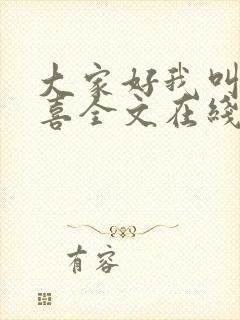 大家好我叫
喜全文在线
有容